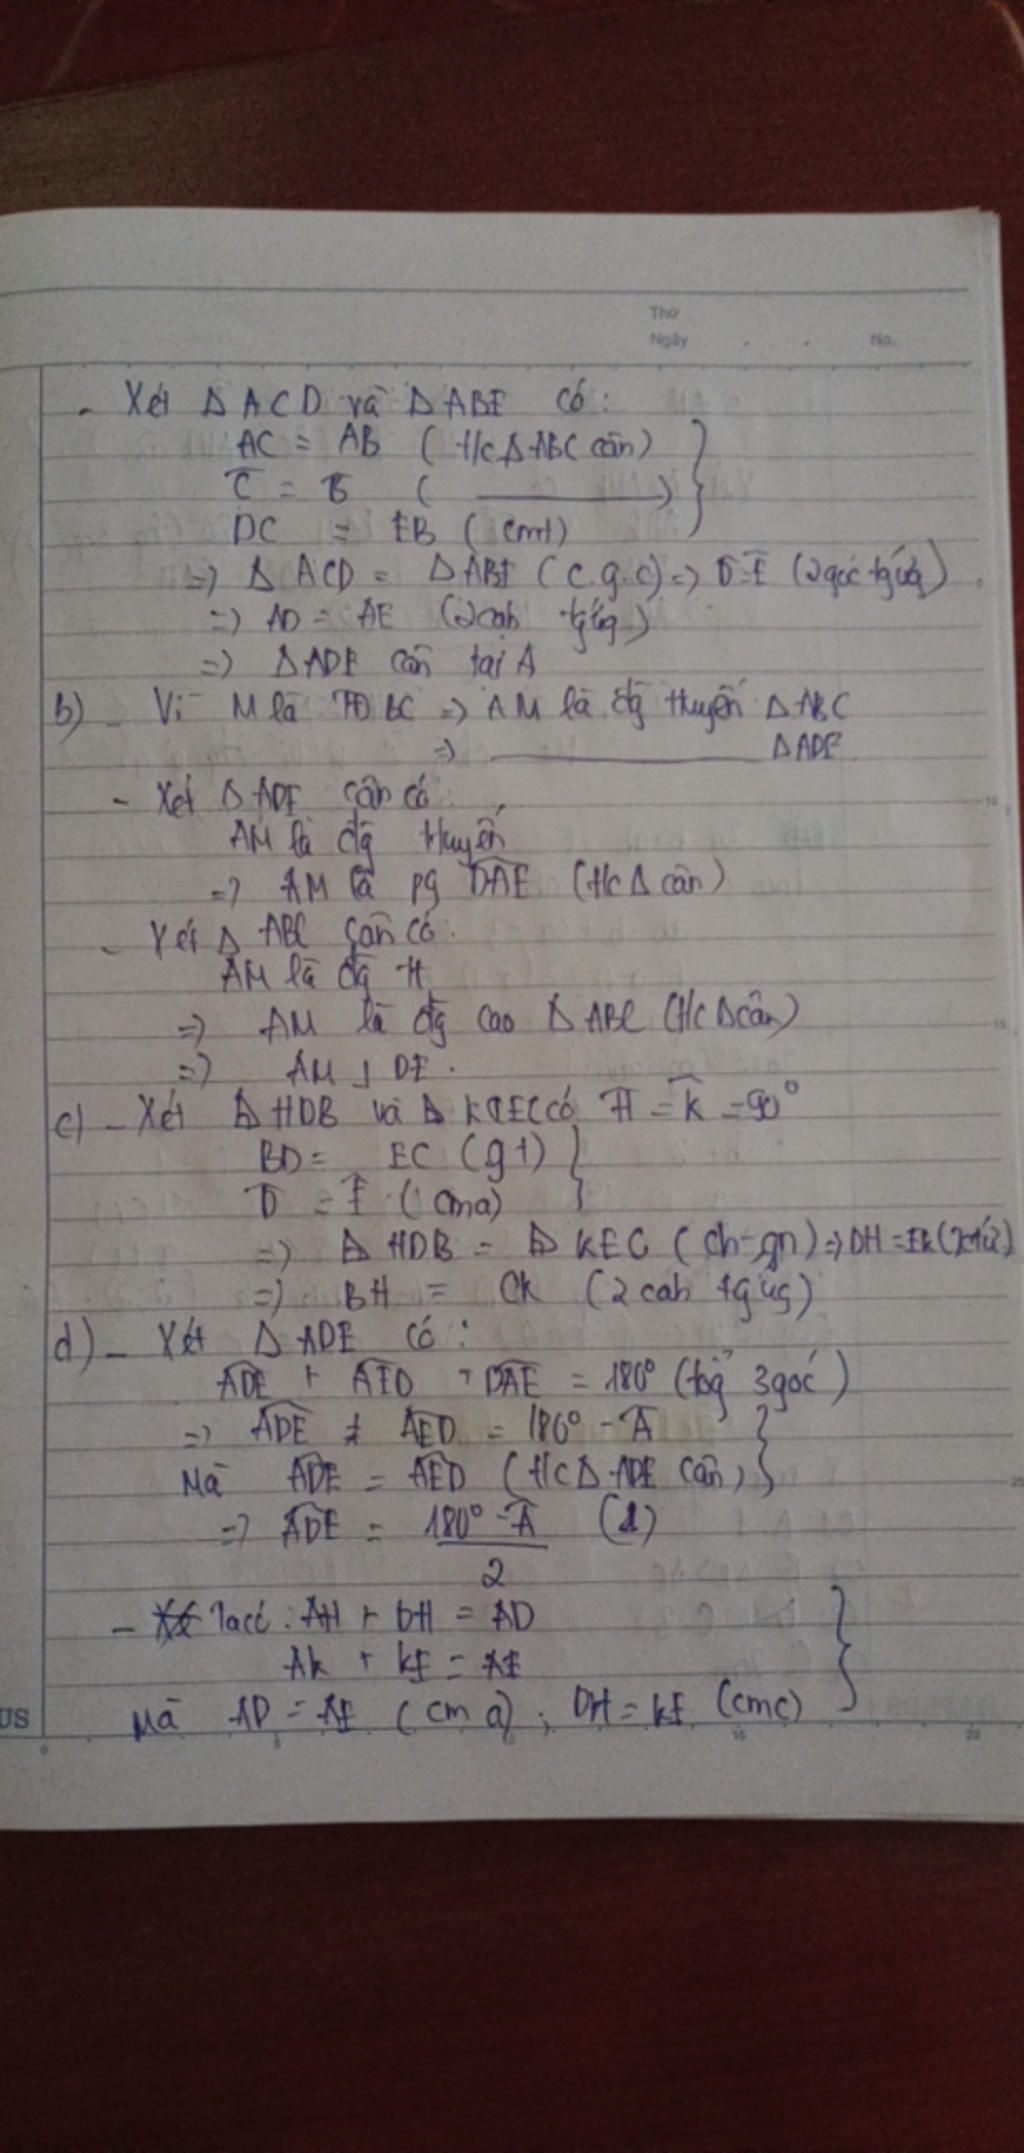 Thứ
Ngày . . No.
- Xét Δ ACD và Δ ABE có:
AC = AB (t/c Δ ABC cân)
Ĉ = B̂ ( ______ )
DC = EB (cmt)
=> Δ ACD = Δ ABE (c.g.c) => D̂ = Ê (2 góc tg ứg)
=> AD = AE (2 cah tg ứg)
=> Δ ADE cân tại A
b) - Vì M là TĐ BC => AM là đg ttuyến Δ ABC
=> ______ Δ ADE
- Xét Δ ADE cân có:
AM là đg ttuyến
=> AM là pg DAE (t/c Δ cân)
- Xét Δ ABC cân có:
AM là đg tt
=> AM là đg cao Δ ABC (t/c Δ cân)
=> AM ⊥ DE.
c) - Xét Δ HDB và Δ KEC có Ĥ = K̂ = 90°
BD = EC (gt)
D̂ = Ê (cma)
=> Δ HDB = Δ KEC (ch-gn) => DH = EK
=> BH = CK (2 cah tg ứg)
d) - Xét Δ ADE có:
ADE + AED + DAE = 180° (tổg 3 góc)
=> ADE + AED = 180° - Â
Mà ADE = AED (t/c Δ ADE cân)
=> ADE = 180° - Â (1)
2
- Ta có: AH + DH = AD
AK + KE = AE
Mà AD = AE (cm a); DH = KE (cmc)
US
0 5 10 15 20